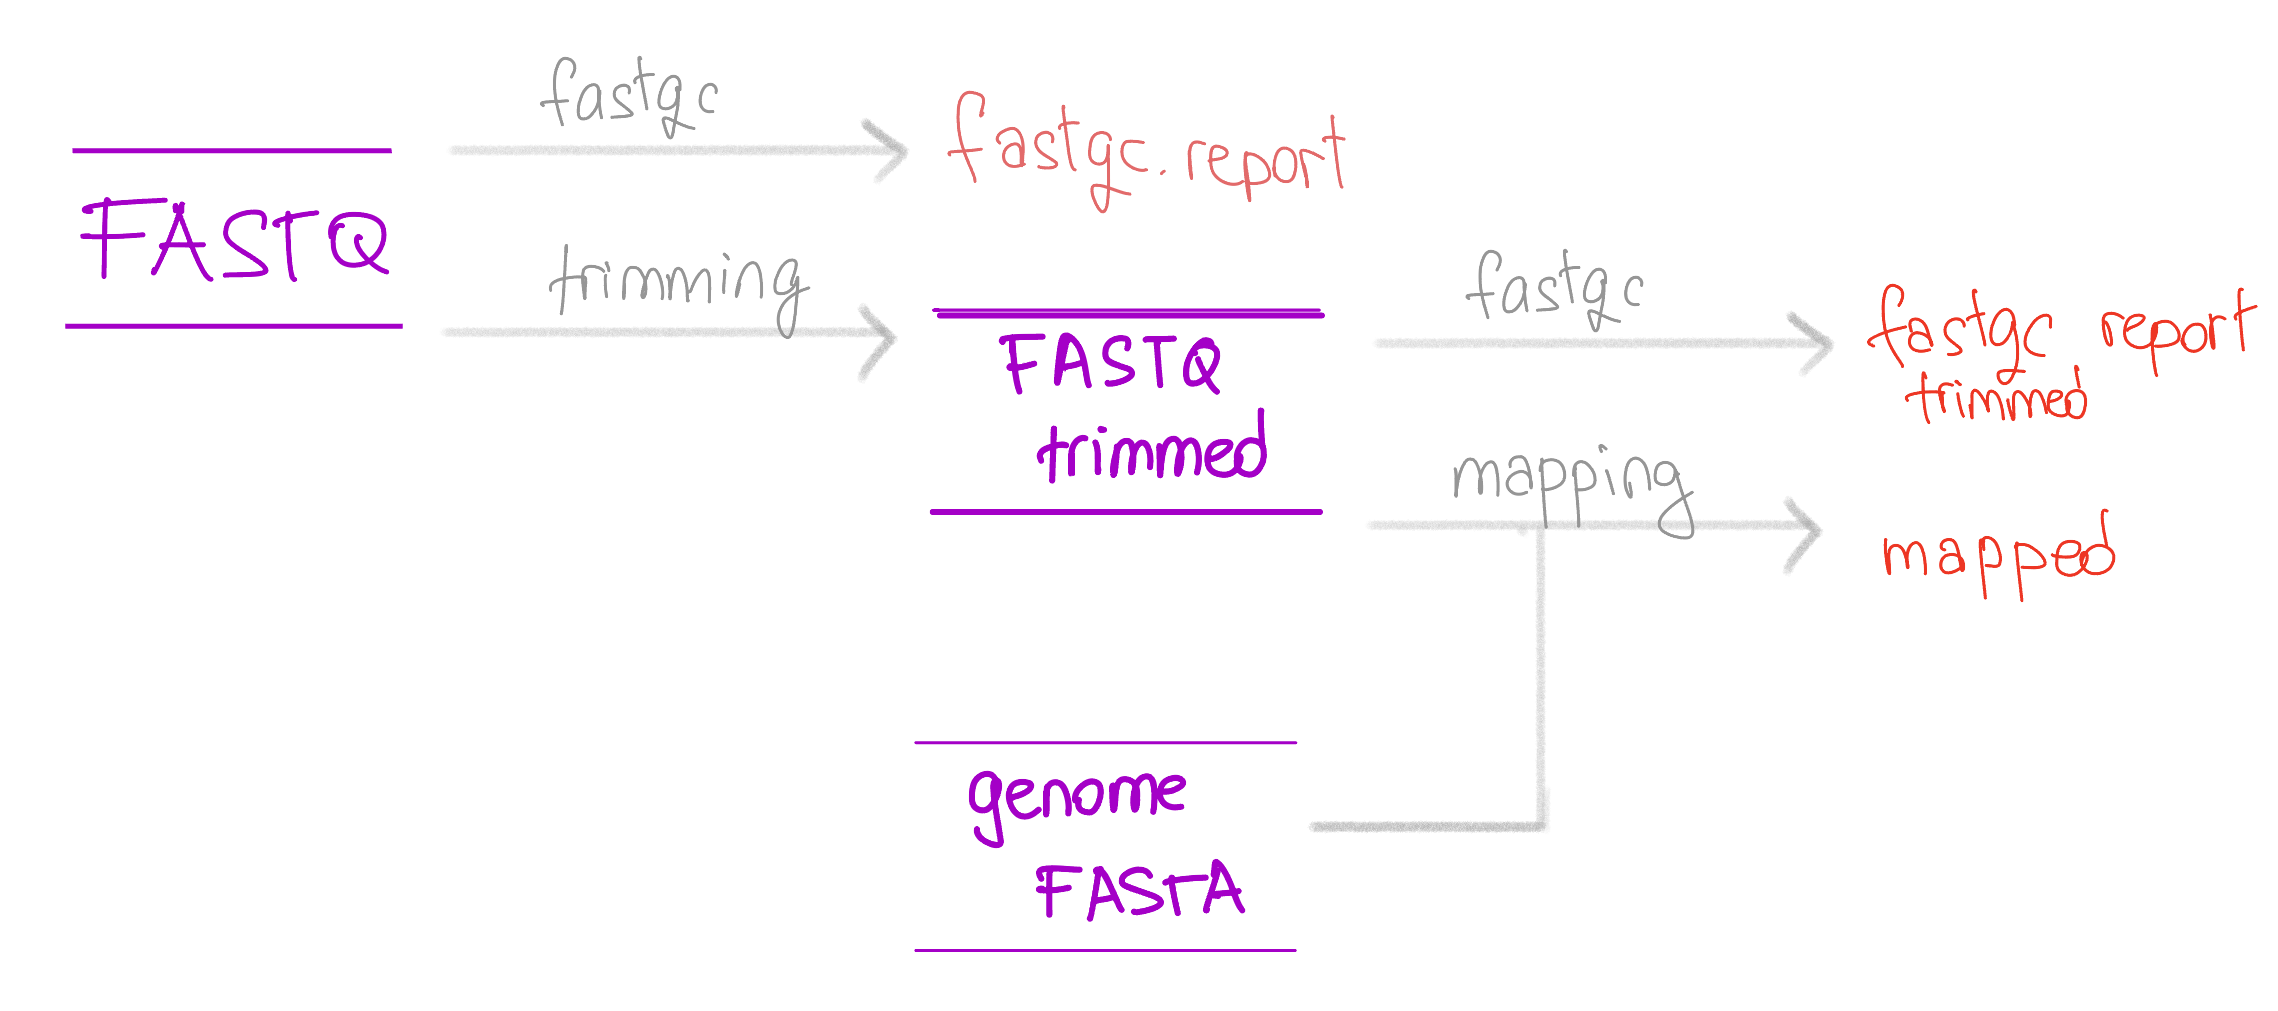 fastqc
fastqc.report
FASTQ
trimming
FASTQ
trimmed
fastqc
fastqc.report
trimmed
mapping
mapped
genome
FASTA